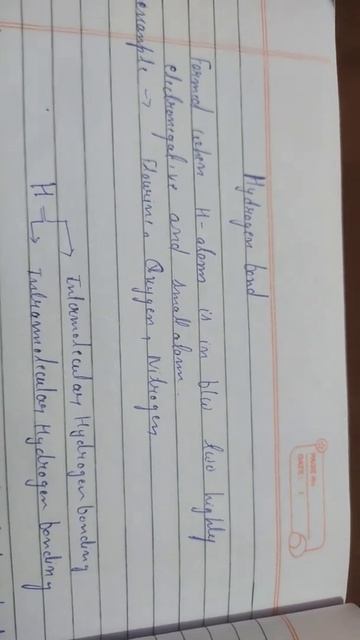 PAGE NO
DATE: / /
Hydrogen bond
Formed when H-atom is in b/w two highly
electronegative and small atom.
example → Flourine, Oxygen, Nitrogen
H → Intermolecular Hydrogen bonding
→ Intramolecular Hydrogen bonding